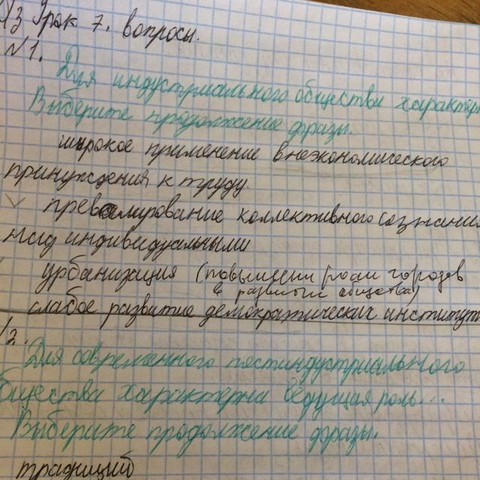 ДЗ Урок 7. вопросы.
№1.
Для индустриального общества характерн
Выберите продолжение фразы.
широкое применение внеэкономического
принуждения к труду.
превалирование коллективного сознания
над индивидуальными
урбанизация (повышени роли городов
в развитии общества)
слабое развитие демократических институт
2.
Для современного постиндустриального
бщества характерна ведущая роль...
Выберите продолжение фразы.
традиций